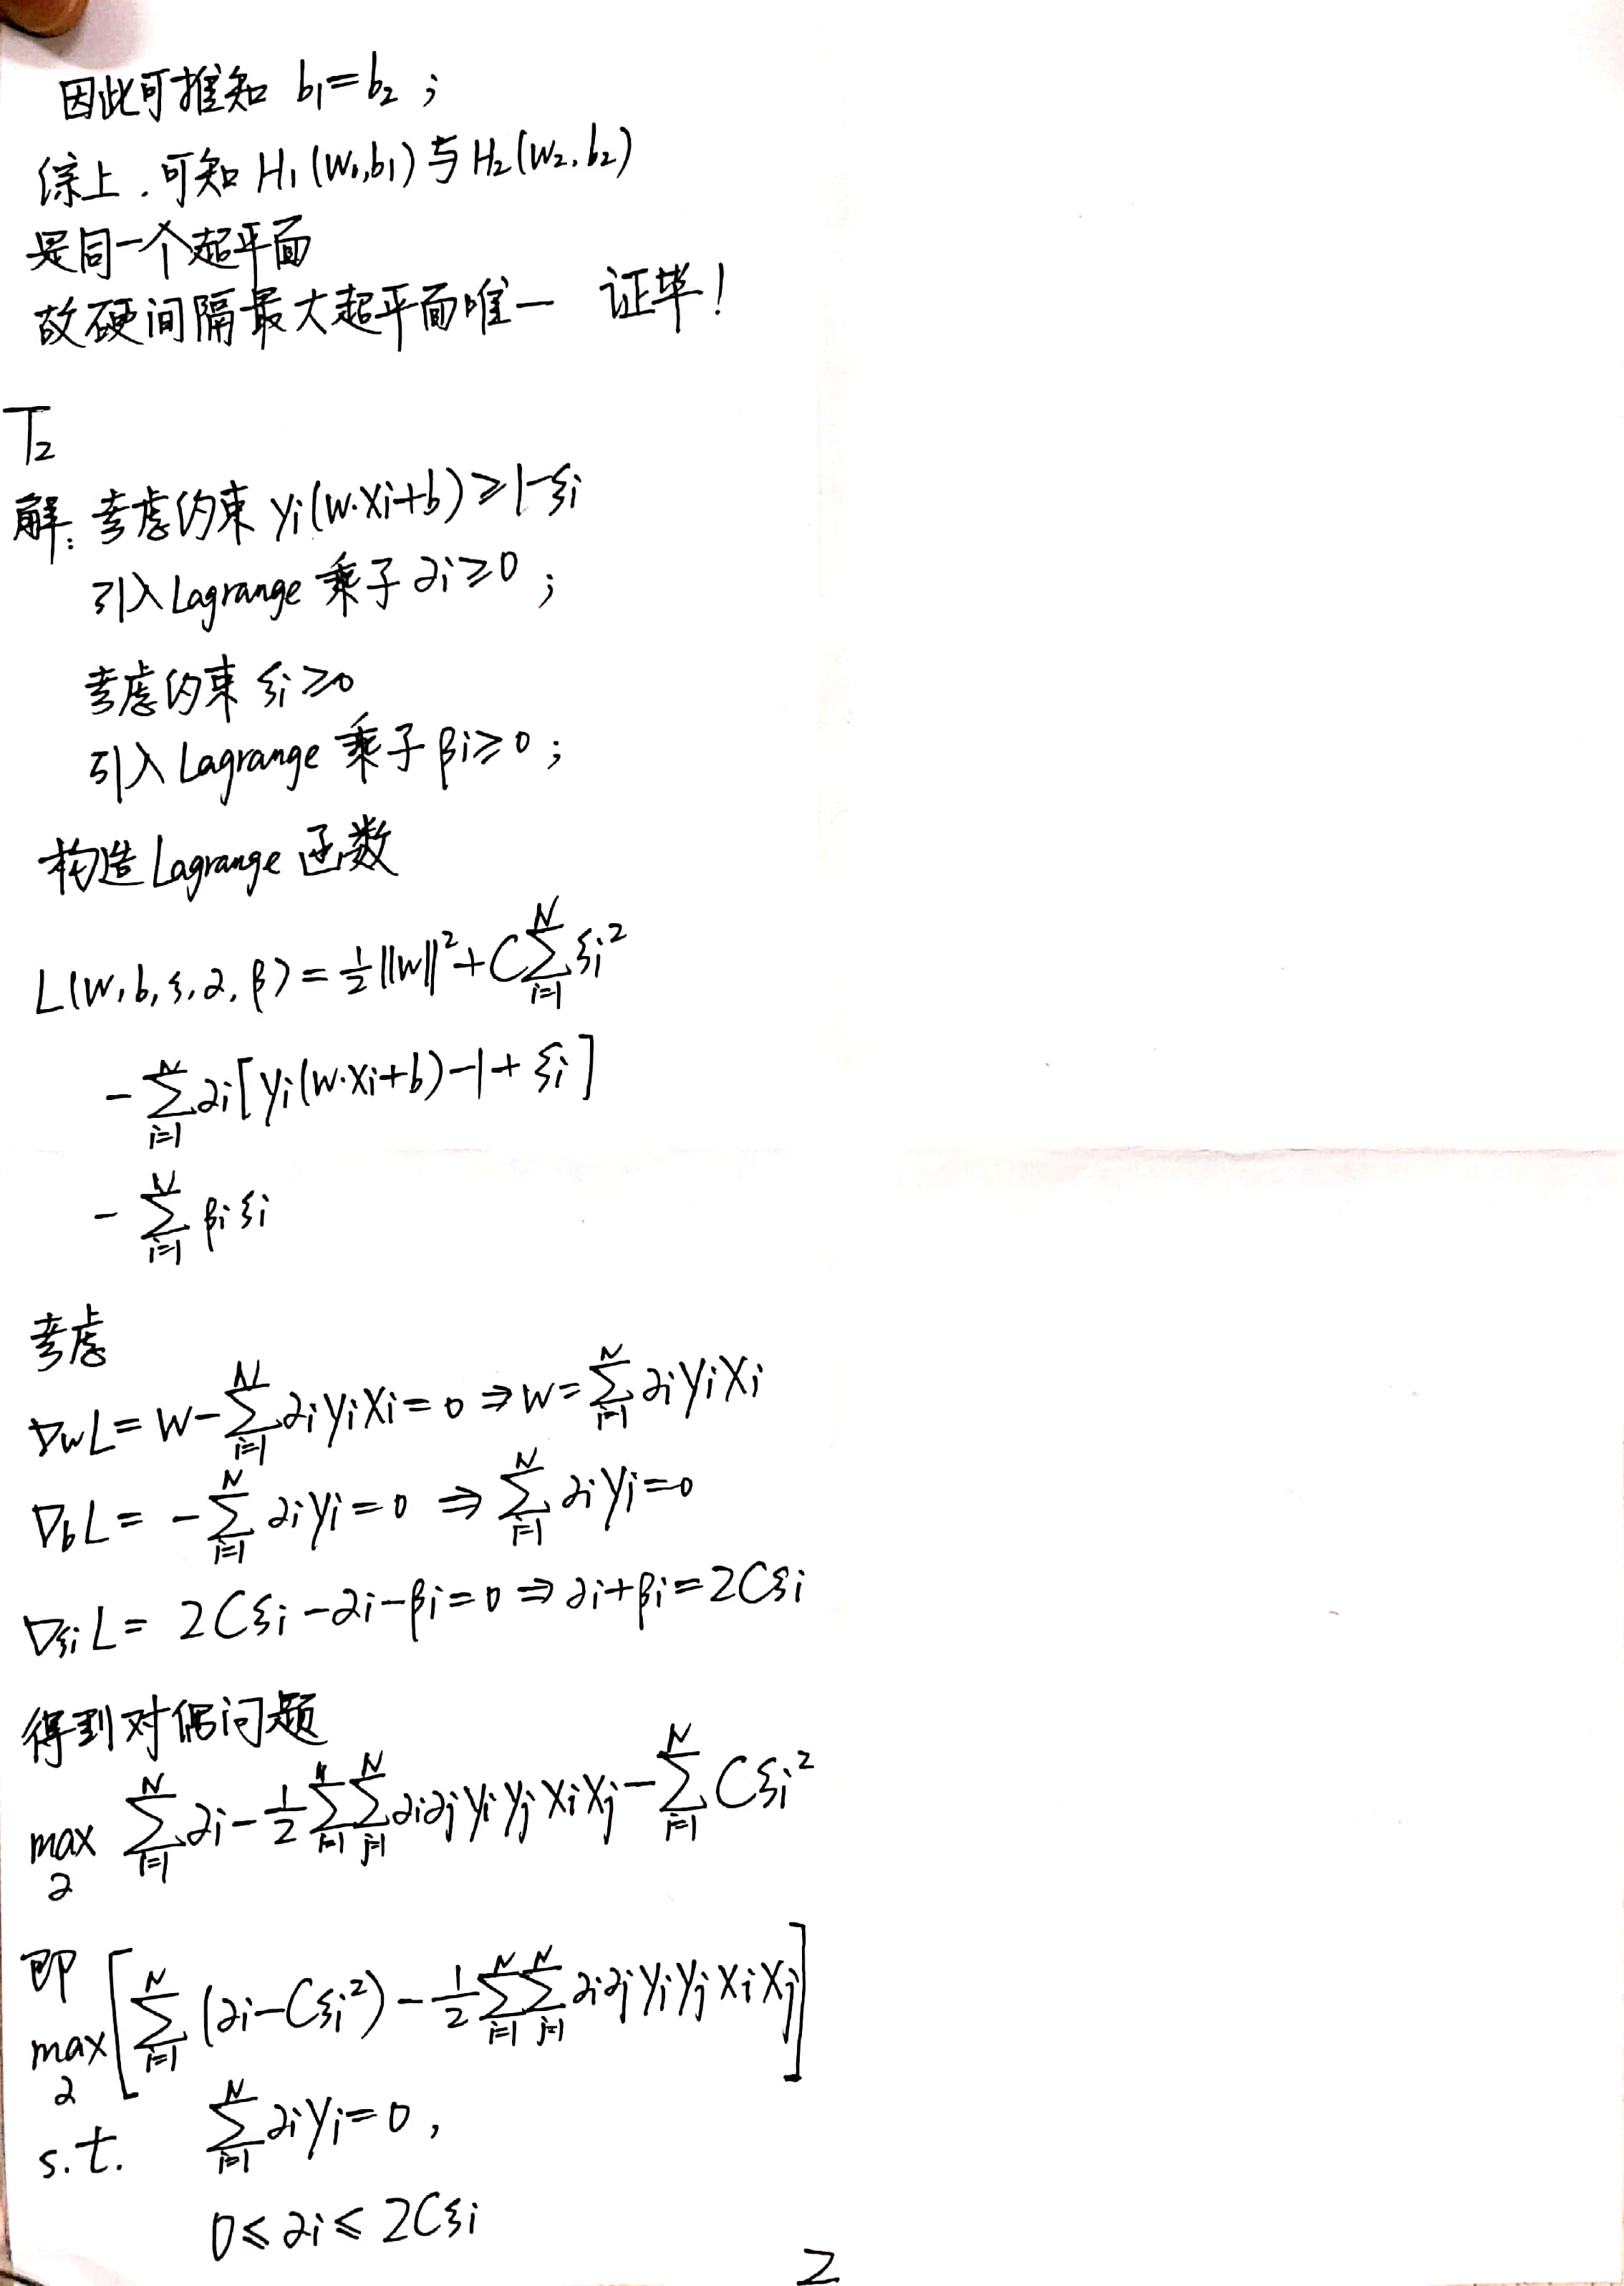 因此可推知 b₁=b₂ ;
综上.可知 H₁(W₁,b₁)与H₂(W₂,b₂)
是同一个超平面
故硬间隔最大超平面唯一 证毕!
T₂
解: 考虑约束 yi(w·xi+b)≥1-ξi
引入Lagrange 乘子 αi≥0 ;
考虑约束 ξi≥0
引入Lagrange 乘子 βi≥0 ;
构造Lagrange 函数
L(w,b,ξ,α,β)=½||w||²+C∑_{i=1}^{N}ξi²
-∑_{i=1}^{N}αi[yi(w·xi+b)-1+ξi]
-∑_{i=1}^{N}βiξi
考虑
∇wL=w-∑_{i=1}^{N}αiyixi=0⇒w=∑_{i=1}^{N}αiyixi
∇bL=-∑_{i=1}^{N}αiyi=0⇒∑_{i=1}^{N}αiyi=0
∇ξiL=2Cξi-αi-βi=0⇒αi+βi=2Cξi
得到对偶问题
max_α ∑_{i=1}^{N}αi-½∑_{i=1}^{N}∑_{j=1}^{N}αiαjyiyjxixj-∑_{i=1}^{N}Cξi²
即
max_α[∑_{i=1}^{N}(αi-Cξi²)-½∑_{i=1}^{N}∑_{j=1}^{N}αiαjyiyjxixj]
s.t. ∑_{i=1}^{N}αiyi=0,
0≤αi≤2Cξi
2